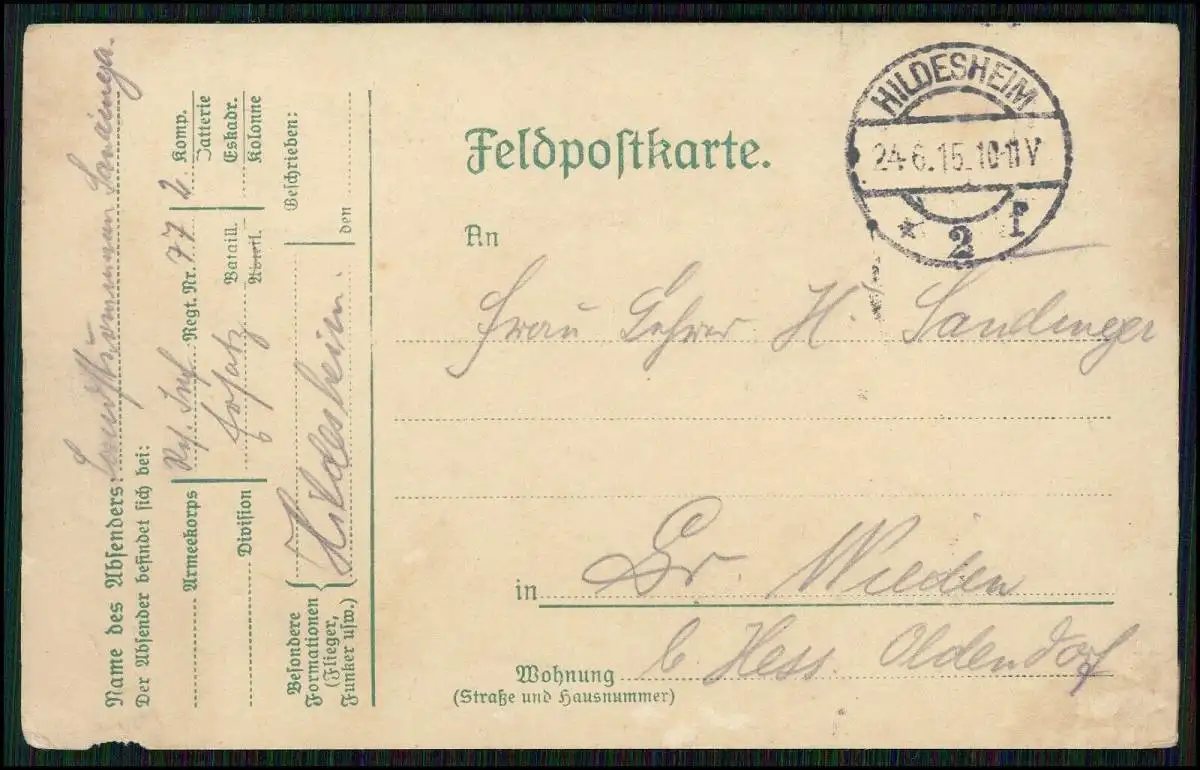 HILDESHEIM
24.6.15.10-11V
* 2 f
Feldpostkarte.
An
Frau Lehrer H.
in Gr. Wieden
Wohnung b. Hess. Oldendorf
(Straße und Hausnummer)
Name des Absenders: Landsturmmann
Der Absender befindet sich bei:
Armeekorps Res. Inf. Regt. Nr. 77 2. Komp.
Batterie
Division Ersatz Bataill. Eskadr.
Abteil. Kolonne
Besondere Formationen (Flieger, Funker usw.) { Hildesheim.
Beschrieben:
den